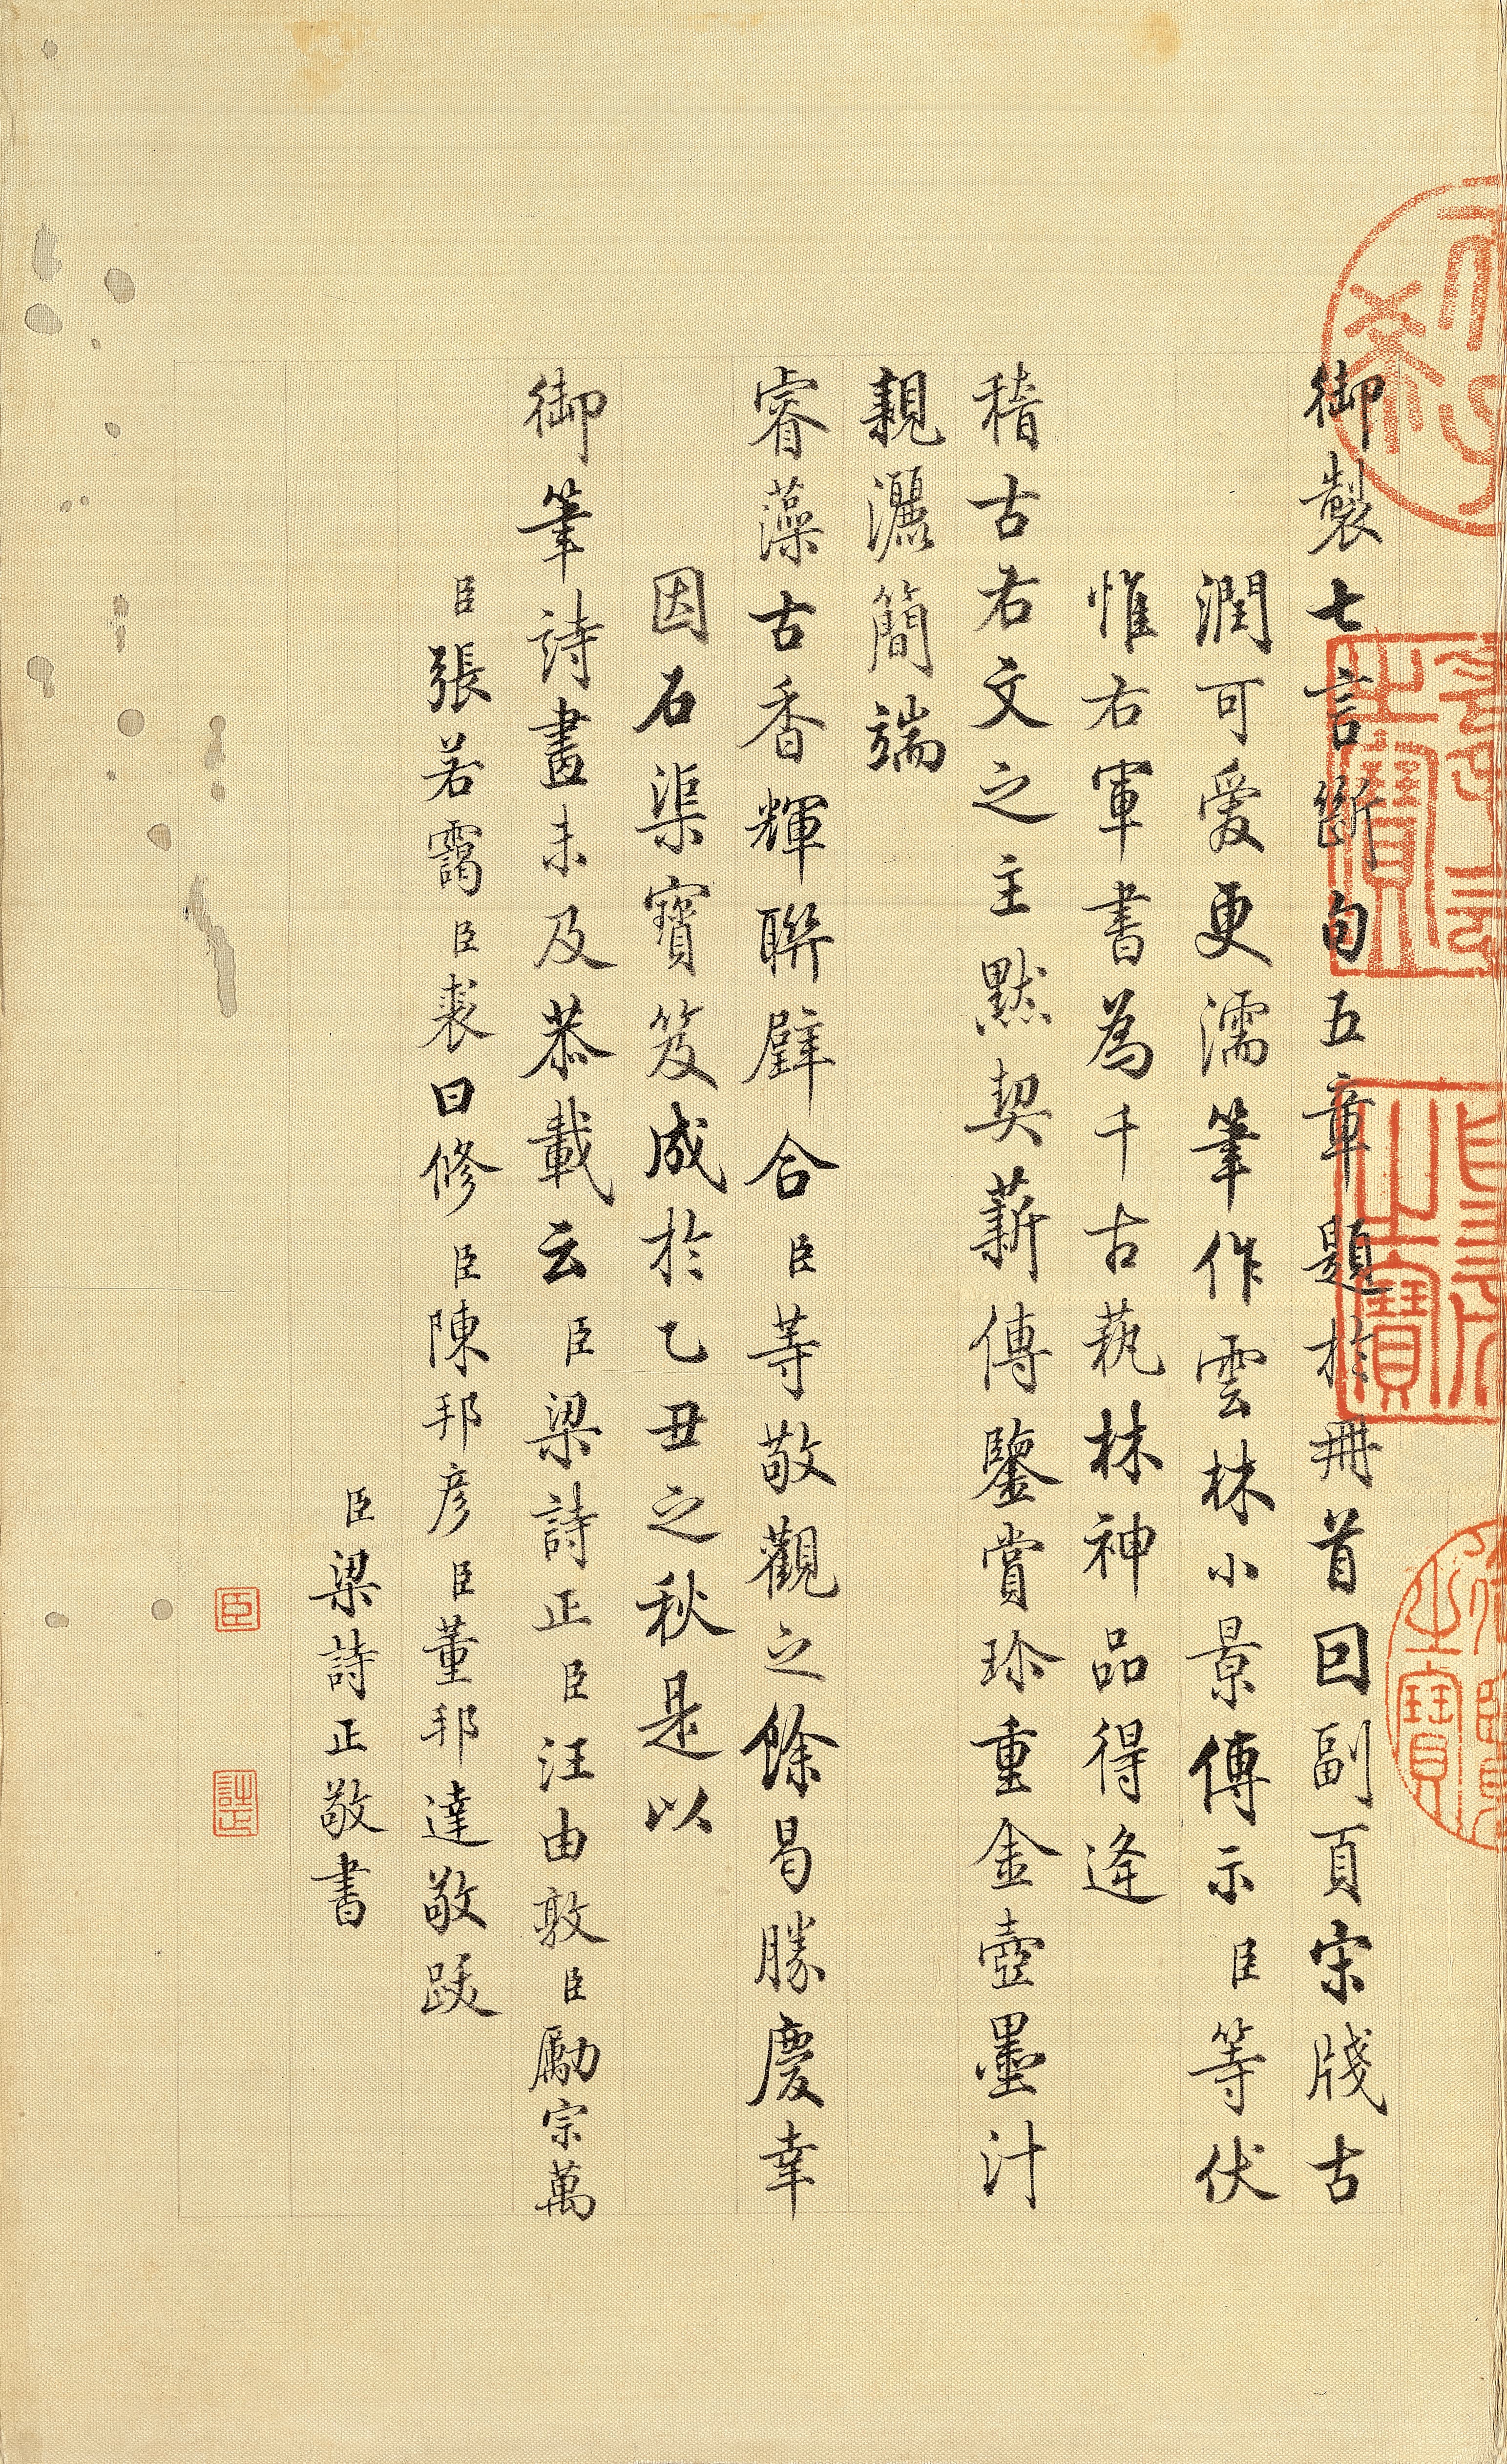 御製七言斷句五章題於冊首回副頁宋牋古
潤可愛更濡筆作雲林小景傳示臣等伏
惟右軍書為千古蓺林神品得逢
稽古右文之主默契薪傳鑒賞珍重金壺墨汁
親灑簡端
睿藻古香輝聯璧合臣等敬觀之餘曷勝慶幸
因石渠寶笈成於乙丑之秋是以
御筆詩畫未及恭載云臣梁詩正臣汪由敦臣勵宗萬
臣張若靄臣裘曰修臣陳邦彥臣董邦達敬跋
臣梁詩正敬書
臣
詩正